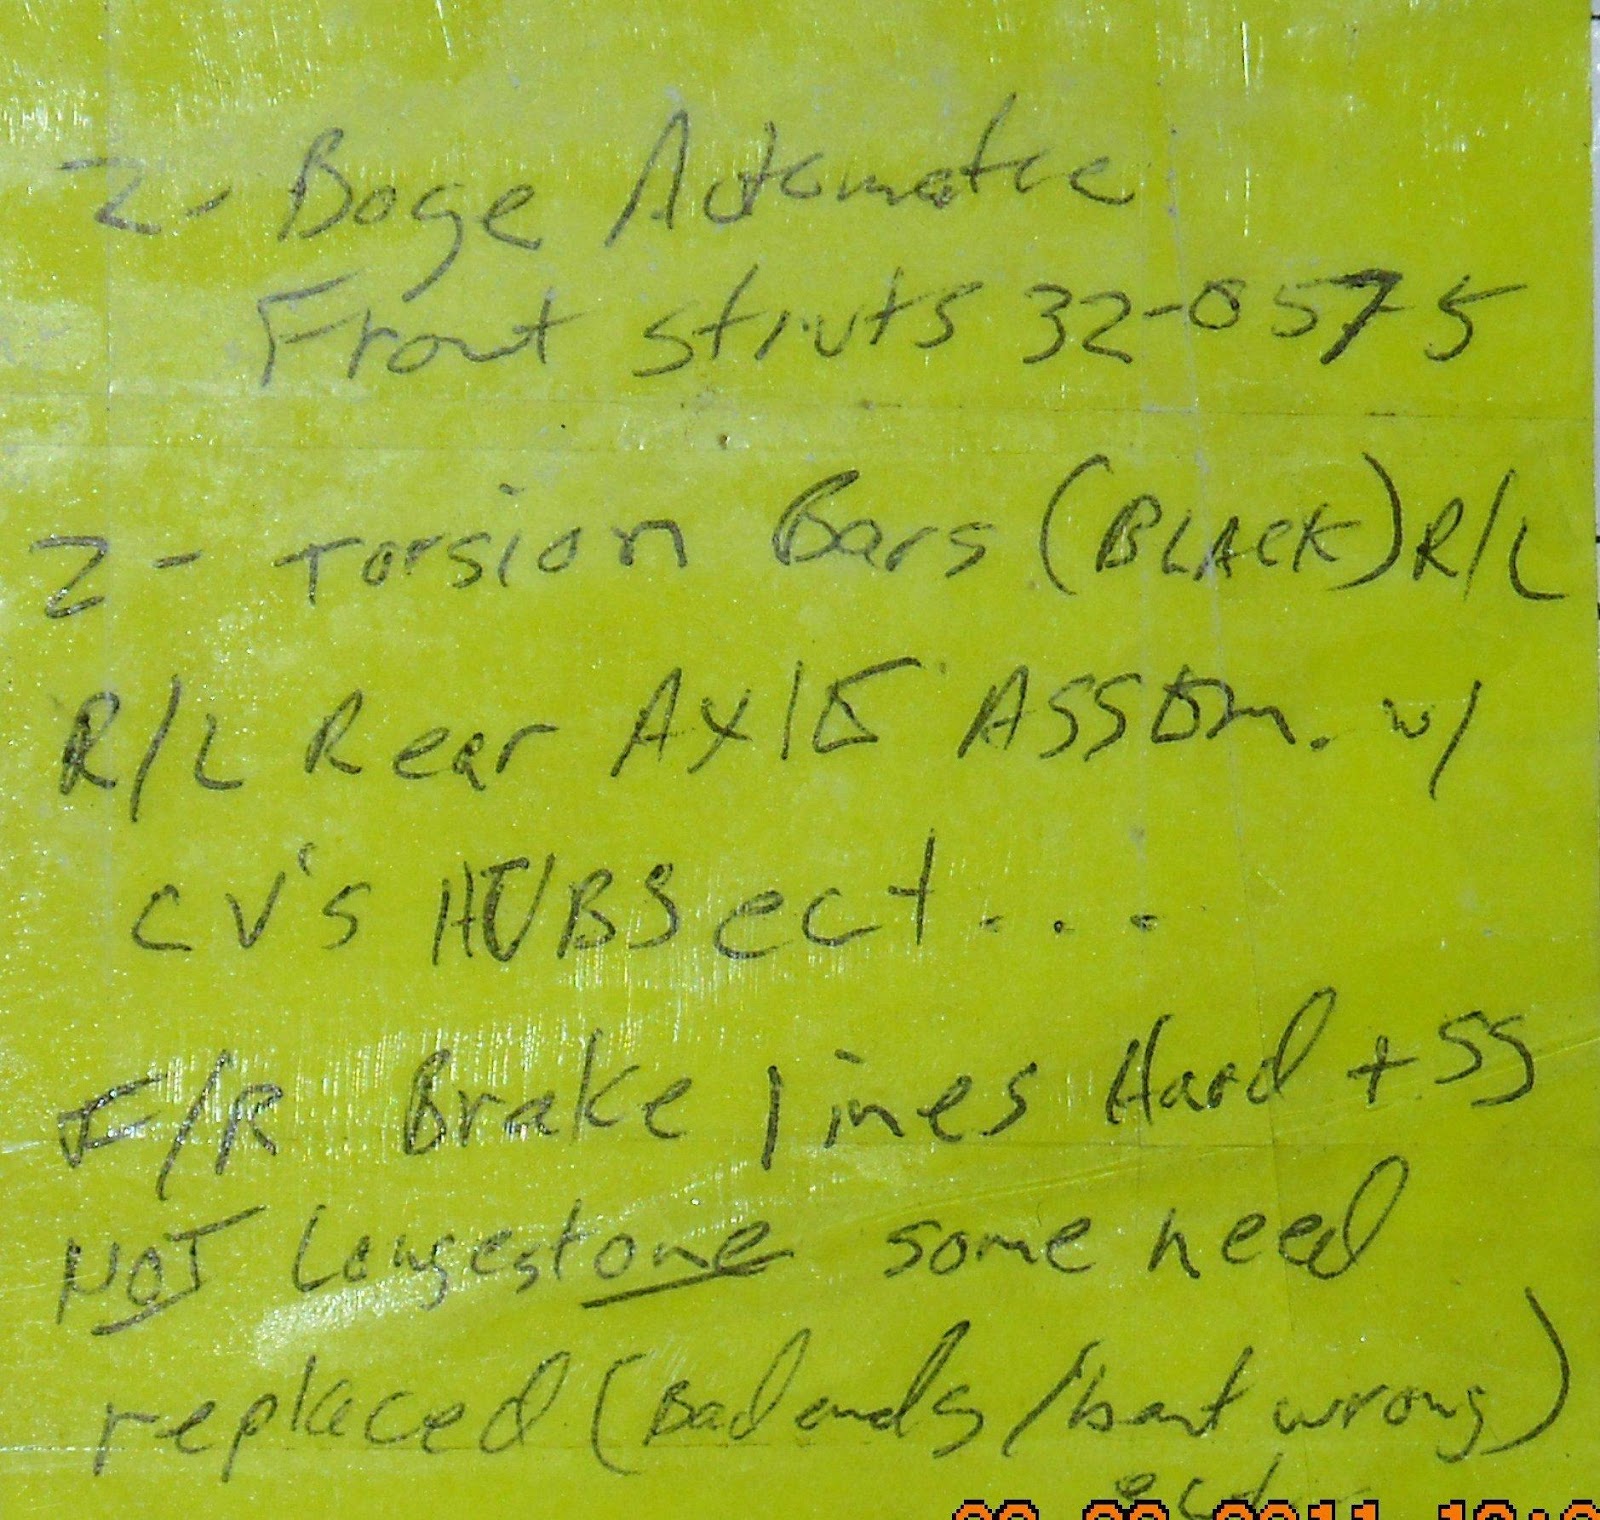 2- Boge Automatic
Front struts 32-0575
2- Torsion Bars (BLACK) R/L
R/L Rear AxlE ASSEm. w/
CV's HUBS ect...
F/R Brake lines Hard + SS
NOT Longest one some need
replaced (Bad ends/bent wrong)
ect.